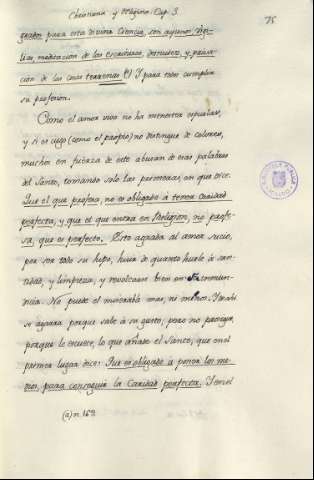 Christiana y Religiosa. Cap. 3.
75
grados para esta divina Ciencia, son ayunos, vigi-
lias, meditacion de las escrituras, desnudez, y priva-
cion de las cosas terrenas (a) Y para todos cumplir
su profesion.
Como el amor vivo no ha menester espuelas,
y si es ciego (como el propio) no distingue de colores,
muchos en fuerza de este abusan de esas palabras
del Santo, tomando solo las primeras, en que dice:
Que el que profesa, no es obligado à tener caridad
perfecta, y que el que entra en Religion, no profe-
sa, que es perfecto. Esto agrada al amor sucio,
por ser todo su hipo, huir de quanto huele à san-
tidad, y limpieza, y revolcarse bien en su inmun-
dicia. No puede el miserable mas, ni menos. Y de ahi
se agarra porque sabe à su gusto, pero no prosigue,
porque le escuece, lo que añade el Santo, que en el
primer lugar dice: Que es obligado à poner los me-
dios, para conseguir la Caridad perfecta. Y en el
(a) n. 163
BIBLIOTECA